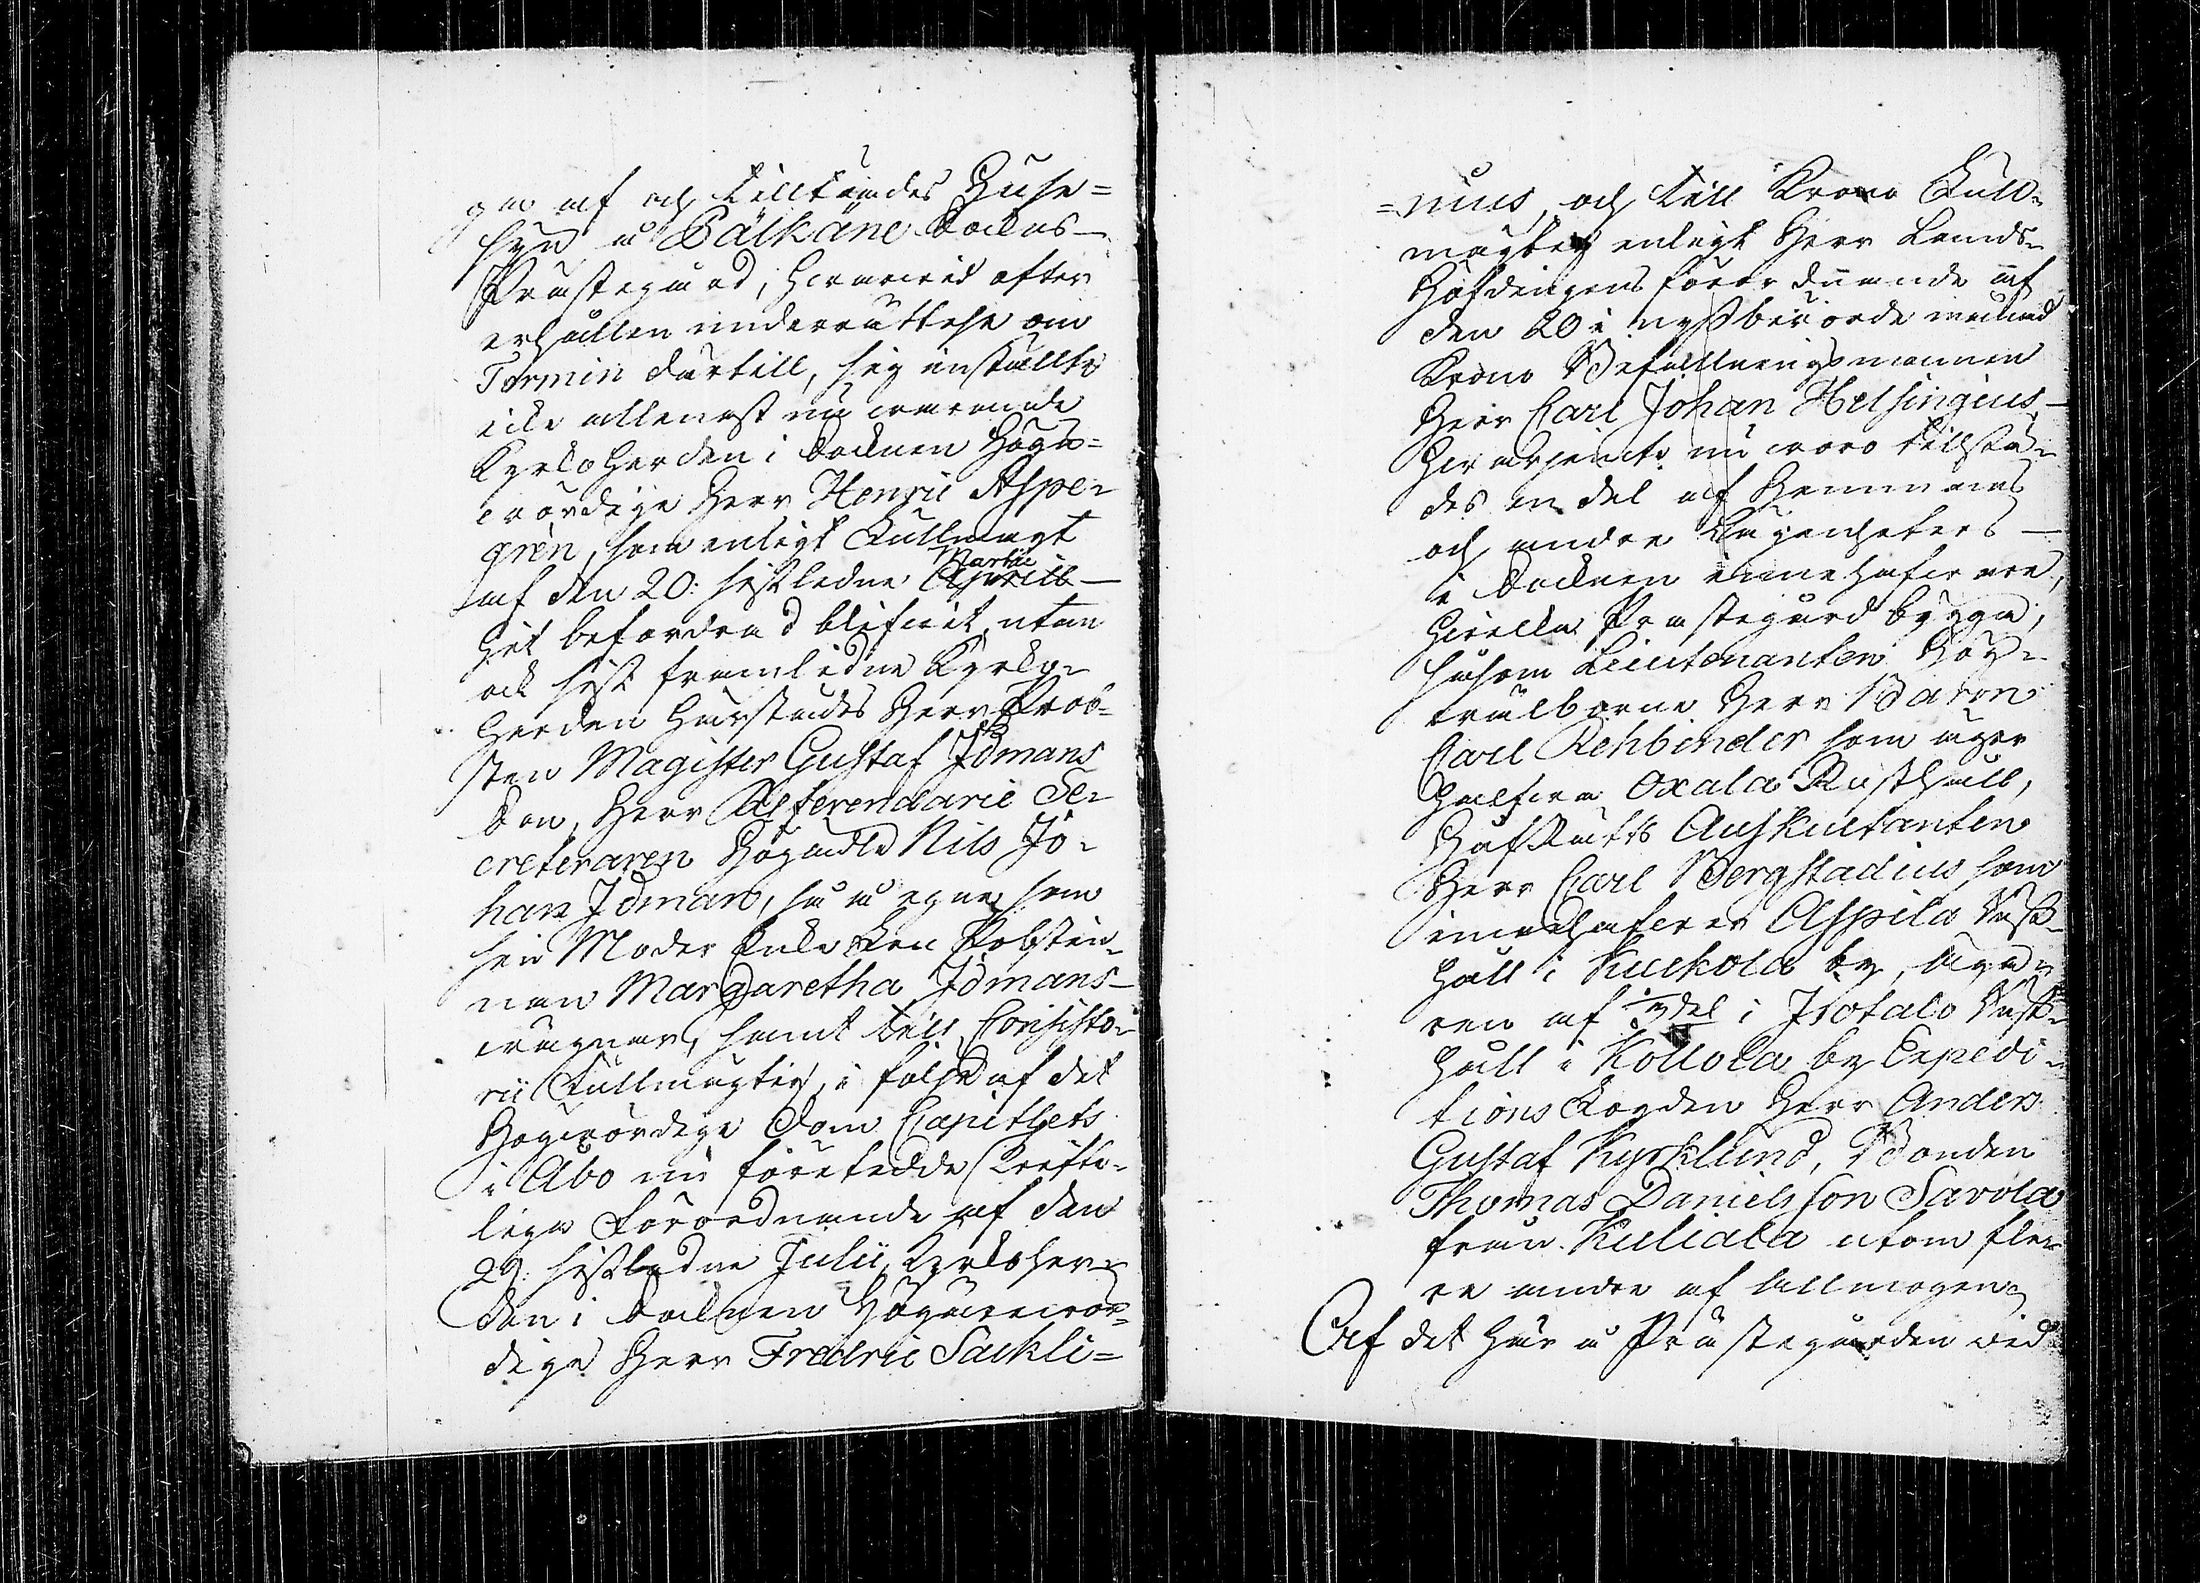 gar af och tilltrædes Huse=
syn å Pälkäne Sockns
Prästegård, hwarwid efter
erhållen underrättelse om
Termin dertill, sig inställte
icke allenast nu warande
Kyrkoherden i Socknen Högw=
wördige Herr Henric Aspe=
gren, som enligt Fullmagt
af den 20: sistledne Martii Aprilis
hit befordrad blifwit, utan
ock sist framledne Kyrko=
herden härstädes Herr Prob=
sten Magister Gustaf Idmans
Son, Herr Referendarie Se=
creteraren Högädle Nils Jo=
han Idman, så å egne som
sin Moder Enke Fru Probstin=
nan Margaretha Idmans
wägnar, samt till Consisto=
rii Fullmägtig, i följd af det
Högwördige Dom Capitlets
i Åbo nu företedde skrifte=
liga Förordnande af den
29: sistledne Julii, Kyrkoher=
den i Socknen Högärewör=
dige Herr Fredric Sackli=
=nius, och till Krono Full=
mägtig enligt Herr Lands=
Höfdingens förordnande af
den 20 i nyssberörde månad
Krono Befallningsmannen
Herr Carl Johan Helsingius,
Hwarjemte nu woro tillstä=
des en del af Hemmans
och andre Lägenheters
i Socknen innehafware,
hwilka Prästegård bygga,
såsom Lieutenanten Hög=
wälborne Herr Baron
Carl Rehbinder som äger
halfwa Oxala Rusthåll,
HofRätts Auskultanten
Herr Carl Bergstadius som
innehafwer Aspila Rust=
håll i Kuckola by, äga=
ren af del i Isotalo Rust=
håll i Kollola by Expedi=
tions Fogden Herr Anders
Gustaf Kyrklund, Bonden
Thomas Danielsson Savola
från Kuliala utom fle=
re andre af Allmogen,
Af det här å Prästegården wid